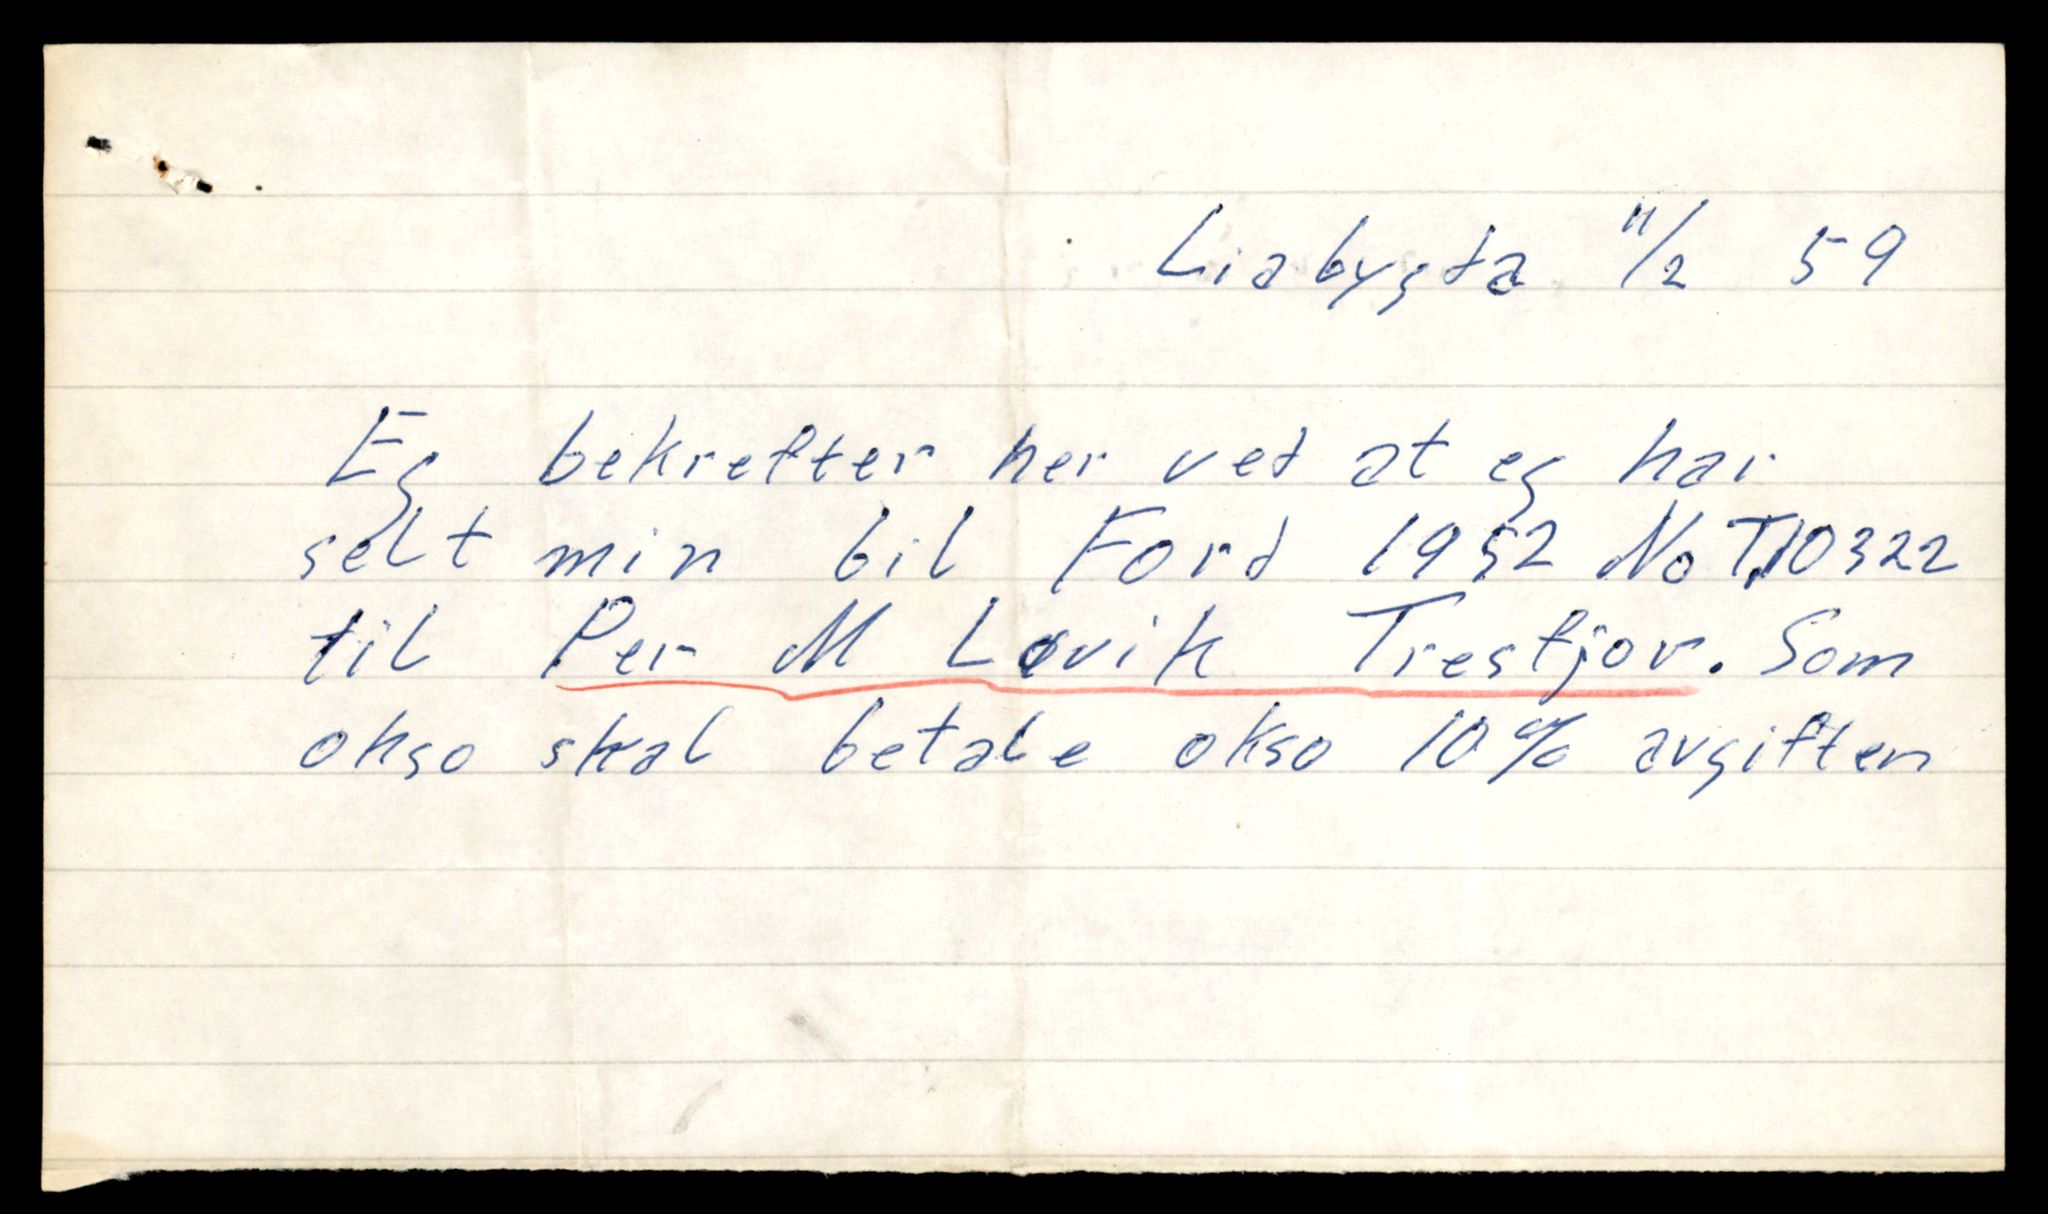 Liabygda 11/2 59
Eg bekrefter her ved at eg har
selt min bil Ford 1952 No T10322
til Per M Løvik Tresfjor. Som
okso skal betale okso 10% avgiften